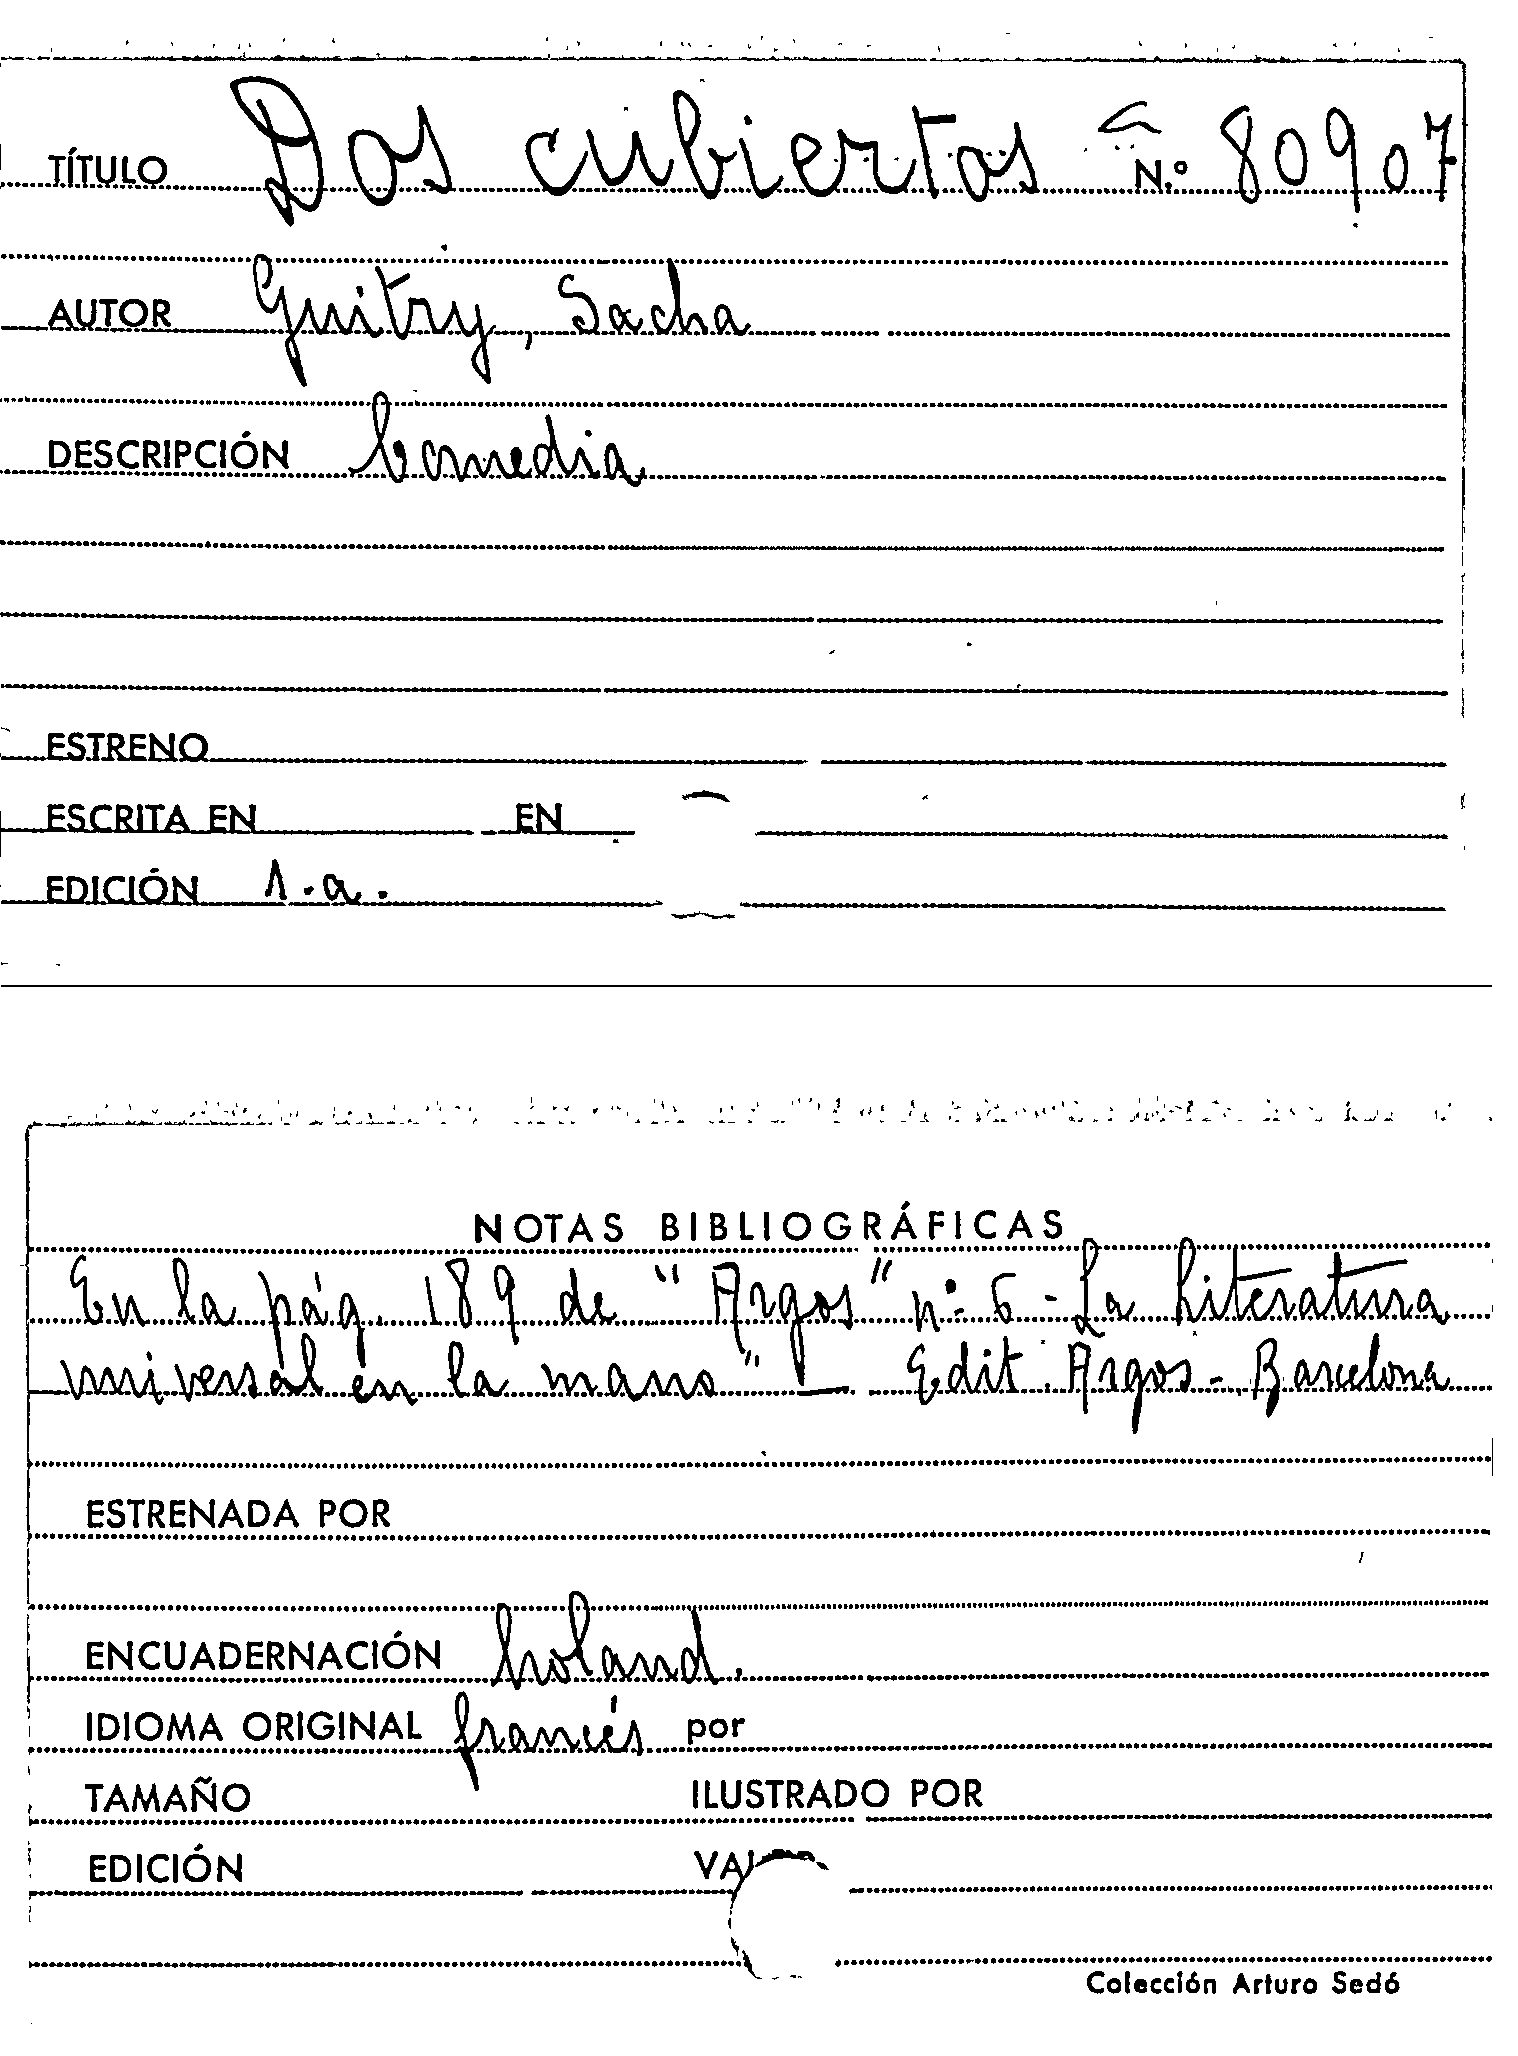 TÍTULO Dos cubiertos N.º 80907
AUTOR Guitry, Sacha
DESCRIPCIÓN Comedia
ESTRENO
ESCRITA EN EN
EDICIÓN 1.a.
NOTAS BIBLIOGRÁFICAS
En la pág. 189 de "Argos" nº 6 - La Literatura
universal en la mano" — Edit. Argos - Barcelona
ESTRENADA POR
ENCUADERNACIÓN holand.
IDIOMA ORIGINAL francés por
TAMAÑO ILUSTRADO POR
EDICIÓN
Colección Arturo Sedó